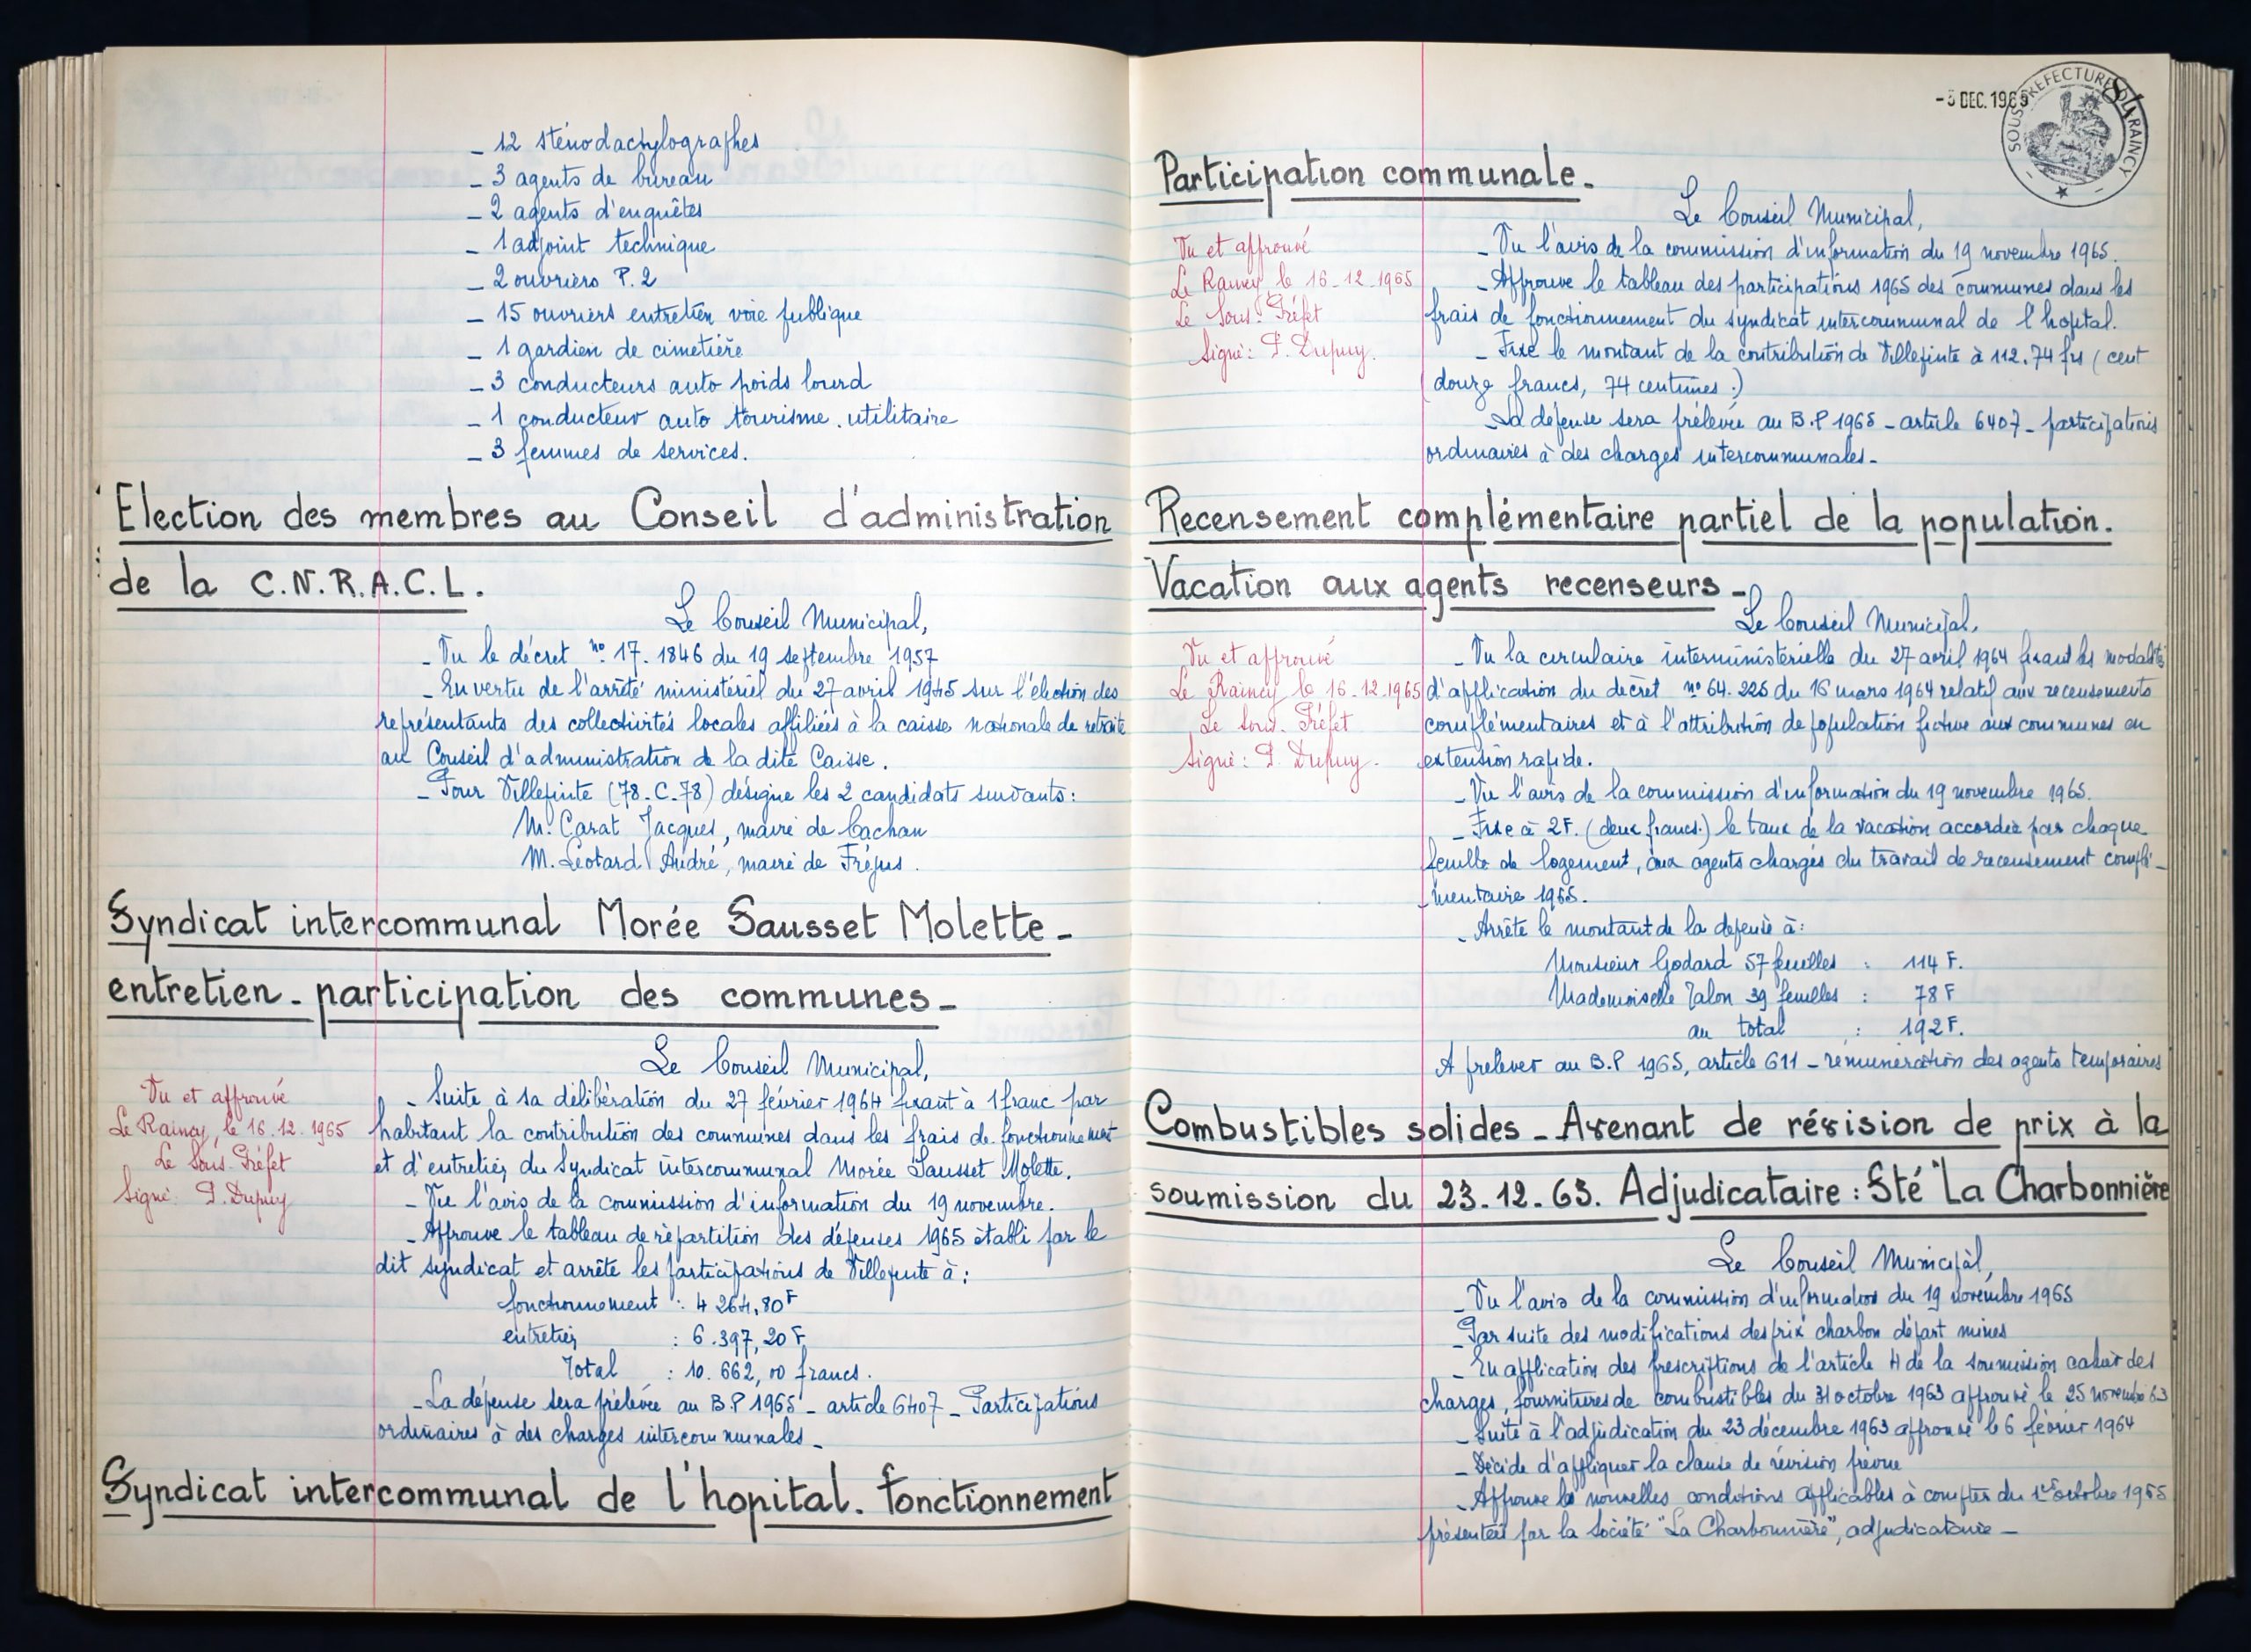 _ 12 sténodactylographes
_ 3 agents de bureau
_ 2 agents d'enquêtes
_ 1 adjoint technique
_ 2 ouvriers P.2
_ 15 ouvriers entretien voie publique
_ 1 gardien de cimetière
_ 3 conducteurs auto poids lourd
_ 1 conducteur auto tourisme. utilitaire
_ 3 femmes de services.
Election des membres au Conseil d'administration
de la C.N.R.A.C.L.
Le Conseil Municipal,
_ Vu le décret n° 17. 1846 du 19 septembre 1957
_ En vertu de l'arrêté ministériel du 27 avril 1945 sur l'élection des
représentants des collectivités locales affiliées à la caisse nationale de retraite
au Conseil d'administration de la dite Caisse.
_ Pour Villepinte (78-C-78) désigne les 2 candidats suivants:
M. Carat Jacques, maire de Cachan
M. Léotard André, maire de Fréjus.
Syndicat intercommunal Morée Sausset Molette_
entretien_participation des communes_
Le Conseil Municipal,
Vu et approuvé
Le Raincy, le 16.12.1965
Le Sous-Préfet
Signé: P. Dupuy
_ Suite à sa délibération du 27 février 1964 fixant à 1 franc par
habitant la contribution des communes dans les frais de fonctionnement
et d'entretien du Syndicat intercommunal Morée Sausset Molette.
_ Vu l'avis de la commission d'information du 19 novembre.
_ Approuve le tableau de répartition des dépenses 1965 établi par le
dit syndicat et arrête les participations de Villepinte à:
fonctionnement : 4 264,80 F
entretien : 6.397,20 F
Total : 10.662,00 francs.
_ La dépense sera prélevée au B.P 1965 _ article 6407 _ Participations
ordinaires à des charges intercommunales_
Syndicat intercommunal de l'hopital. Fonctionnement
-3 DEC. 1965
SOUS PREFECTURE DU RAINCY
81
Participation communale.
Le Conseil Municipal,
Vu et approuvé
Le Raincy le 16-12-1965
Le Sous-Préfet
Signé: P. Dupuy.
_ Vu l'avis de la commission d'information du 19 novembre 1965.
_ Approuve le tableau des participations 1965 des communes dans les
frais de fonctionnement du syndicat intercommunal de l'hopital.
_ Fixe le montant de la contribution de Villepinte à 112.74 frs (cent
douze francs, 74 centimes.)
_ La dépense sera prélevée au B.P 1965 _ article 6407 _ participations
ordinaires à des charges intercommunales_
Recensement complémentaire partiel de la population.
Vacation aux agents recenseurs_
Le Conseil Municipal,
Vu et approuvé
Le Raincy le 16.12.1965
Le Sous-Préfet
Signé: P. Dupuy.
_ Vu la circulaire interministérielle du 27 avril 1964 fixant les modalités
d'application du décret n° 64.226 du 16 mars 1964 relatif aux recensements
complémentaires et à l'attribution de population fictive aux communes en
extension rapide.
_ Vu l'avis de la commission d'information du 19 novembre 1965.
_ Fixe à 2F. (deux francs.) le taux de la vacation accordée par chaque
feuille de logement, aux agents chargés du travail de recensement complé_
mentaire 1965.
_ Arrête le montant de la dépense à:
Monsieur Godard 57 feuilles : 114 F.
Mademoiselle Talon 39 feuilles : 78 F
au total : 192 F.
A prélever au B.P 1965, article 611 _ rémunération des agents temporaires
Combustibles solides_Avenant de révision de prix à la
soumission du 23.12.63. Adjudicataire: Sté "La Charbonnière
Le Conseil Municipal,
_ Vu l'avis de la commission d'information du 19 novembre 1965
_ Par suite des modifications des prix charbon départ mines
_ En application des prescriptions de l'article 4 de la soumission cahier des
charges, fournitures de combustibles du 31 octobre 1963 approuvé le 25 novembre 63
_ Suite à l'adjudication du 23 décembre 1963 approuvé le 6 février 1964
_ Décide d'appliquer la clause de révision prévue
_ Approuve les nouvelles conditions applicables à compter du 1er octobre 1965
présentées par la Société "La Charbonnière", adjudicataire_